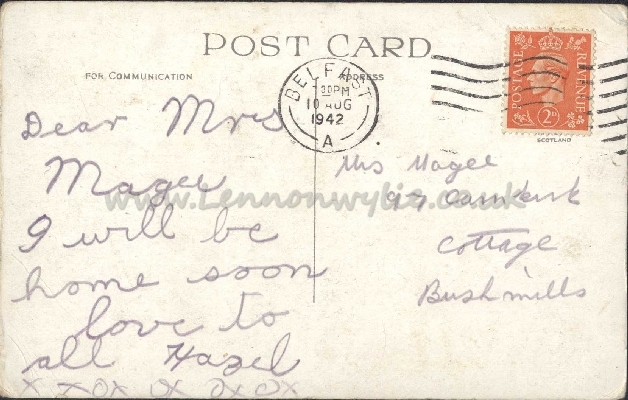 POST CARD
FOR COMMUNICATION
ADDRESS
BELFAST
30PM
10 AUG
1942
A
POSTAGE
REVENUE
2D
SCOTLAND
www.Lennonwylie.co.uk
Dear Mrs
Magee
I will be
home soon
love to
all Hazel
x x o x o x o x o x
Mrs Magee
97
Cottage
Bushmills